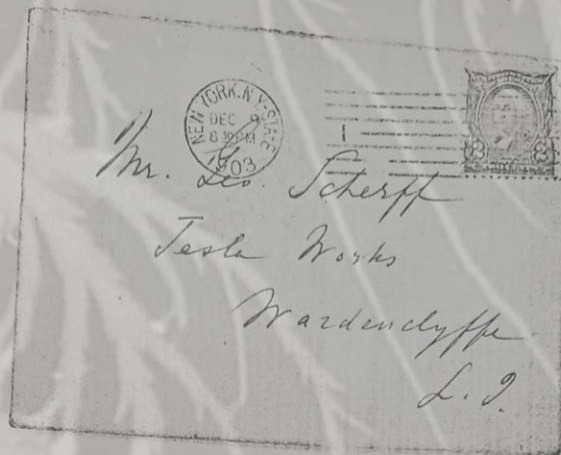 NEW YORK, N.Y. STA-E
DEC 9
1903
1
2 2
Mr. Geo. Scherff
Tesla Works
Wardenclyffe
L. I.